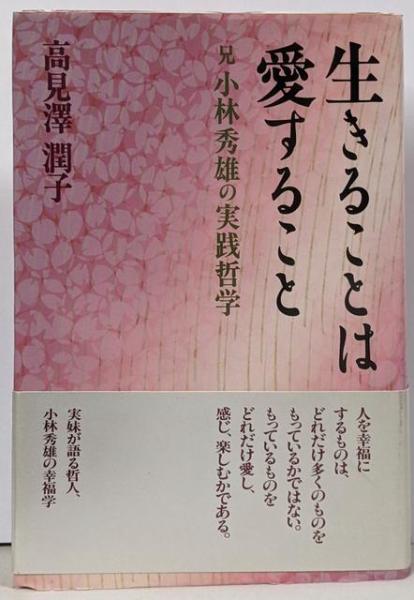 生きることは
愛すること
兄 小林秀雄の実践哲学
高見澤 潤子
人を幸福に
するものは、
どれだけ多くのものを
もっているかではない。
もっているものを
どれだけ愛し、
感じ、楽しむかである。
実妹が語る哲人、
小林秀雄の幸福学